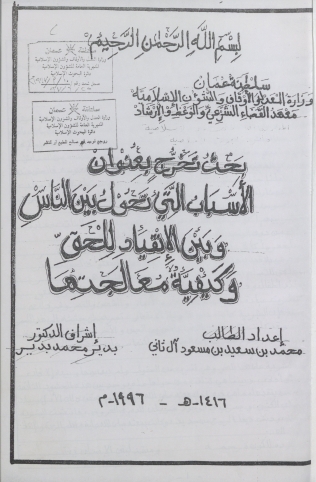 بسم الله الرحمن الرحيم
سلطنة عمان
وزارة العدل والأوقاف والشؤون الإسلامية
معهد القضاء الشرعي والوعظ والإرشاد
سلطنة عمان
وزارة العدل والأوقاف والشؤون الإسلامية
المديرية العامة للشؤون الإسلامية
دائرة البحوث الإسلامية
سلطنة عمان
وزارة العدل والأوقاف والشؤون الإسلامية
المديرية العامة للشؤون الإسلامية
دائرة البحوث الإسلامية
بحث تخرج بعنوان
الأسباب التي تحول بين الناس
وبين الإنقياد للحق
وكيفية معالجتها
إعداد الطالب
محمد بن سعيد بن مسعود آل ثاني
إشراف الدكتور
بدير محمد بدير
١٤١٦-هـ - ١٩٩٦-م